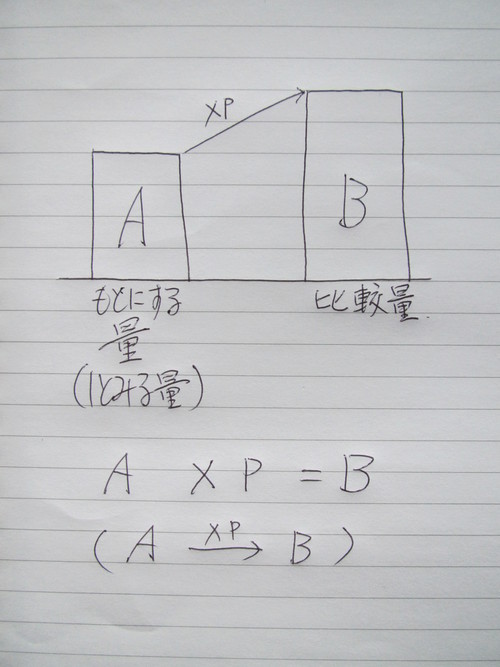 ×P
A
B
もとにする
量
(1とみる量)
比較量.
A × P = B
×P
(A → B)